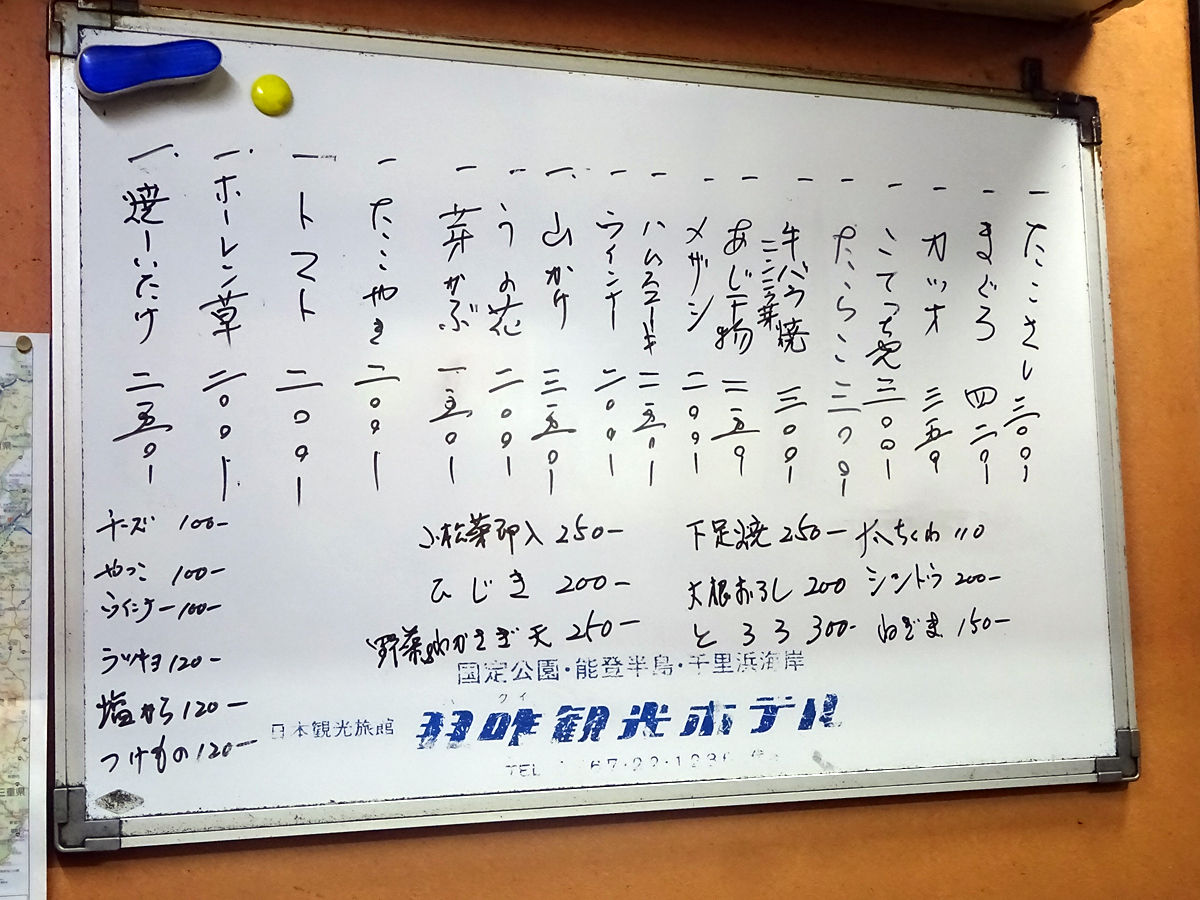 一 たこさし 三〇〇ー
一 まぐろ 四二〇ー
一 カツオ 三五〇
一 こてっちゃん 三〇〇ー
一 たらこ 三〇〇ー
一 牛バラ焼 三〇〇ー
一 ニンニク芽
一 あじ干物 二五〇
一 メザシ 二〇〇ー
一 ハムステーキ 二五〇ー
一 ウインナー 二〇〇ー
一 山かけ 三五〇ー
一 うの花 二〇〇ー
一 芽かぶ 一五〇ー
一 たこやき 二〇〇ー
一 トマト 二〇〇ー
一 ホーレン草 二〇〇ー
一 焼しいたけ 二五〇ー
チーズ 100-
やっこ 100-
ウインナー 100-
ラッキョ 120-
塩から 120-
つけもの 120-
小松菜卵入 250-
ひじき 200-
野菜わかさぎ天 250-
下足焼 250-
大根おろし 200
とろろ 300-
大ちくわ 110
シシトウ 200-
ねぎま 150-
国定公園・能登半島・千里浜海岸
日本観光旅館
クイ
羽咋観光ホテル
TEL